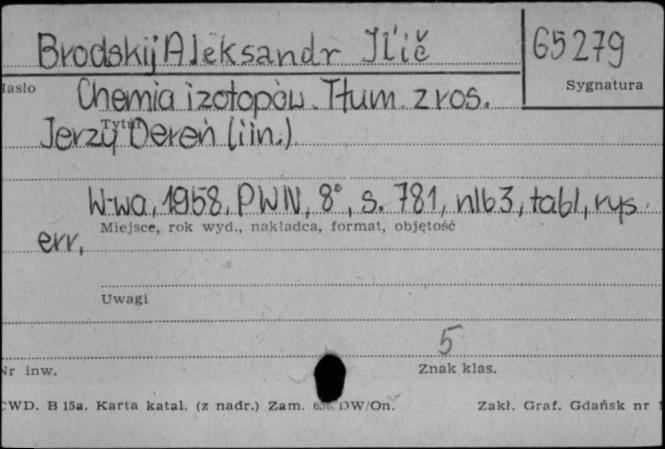 Brodskij Aleksandr Il'ič
65279
Hasło
Sygnatura
Chemia izotopów. Tłum. z ros.
Tytuł
Jerzy Dereń (i in.)
W-wa, 1958, PWN, 8°, s. 781, nlb 3, tabl, rys.
Miejsce, rok wyd., nakładca, format, objętość
err,
Uwagi
5
Nr inw.
Znak klas.
CWD. B 15a. Karta katal. (z nadr.) Zam. DW/On.
Zakł. Graf. Gdańsk nr